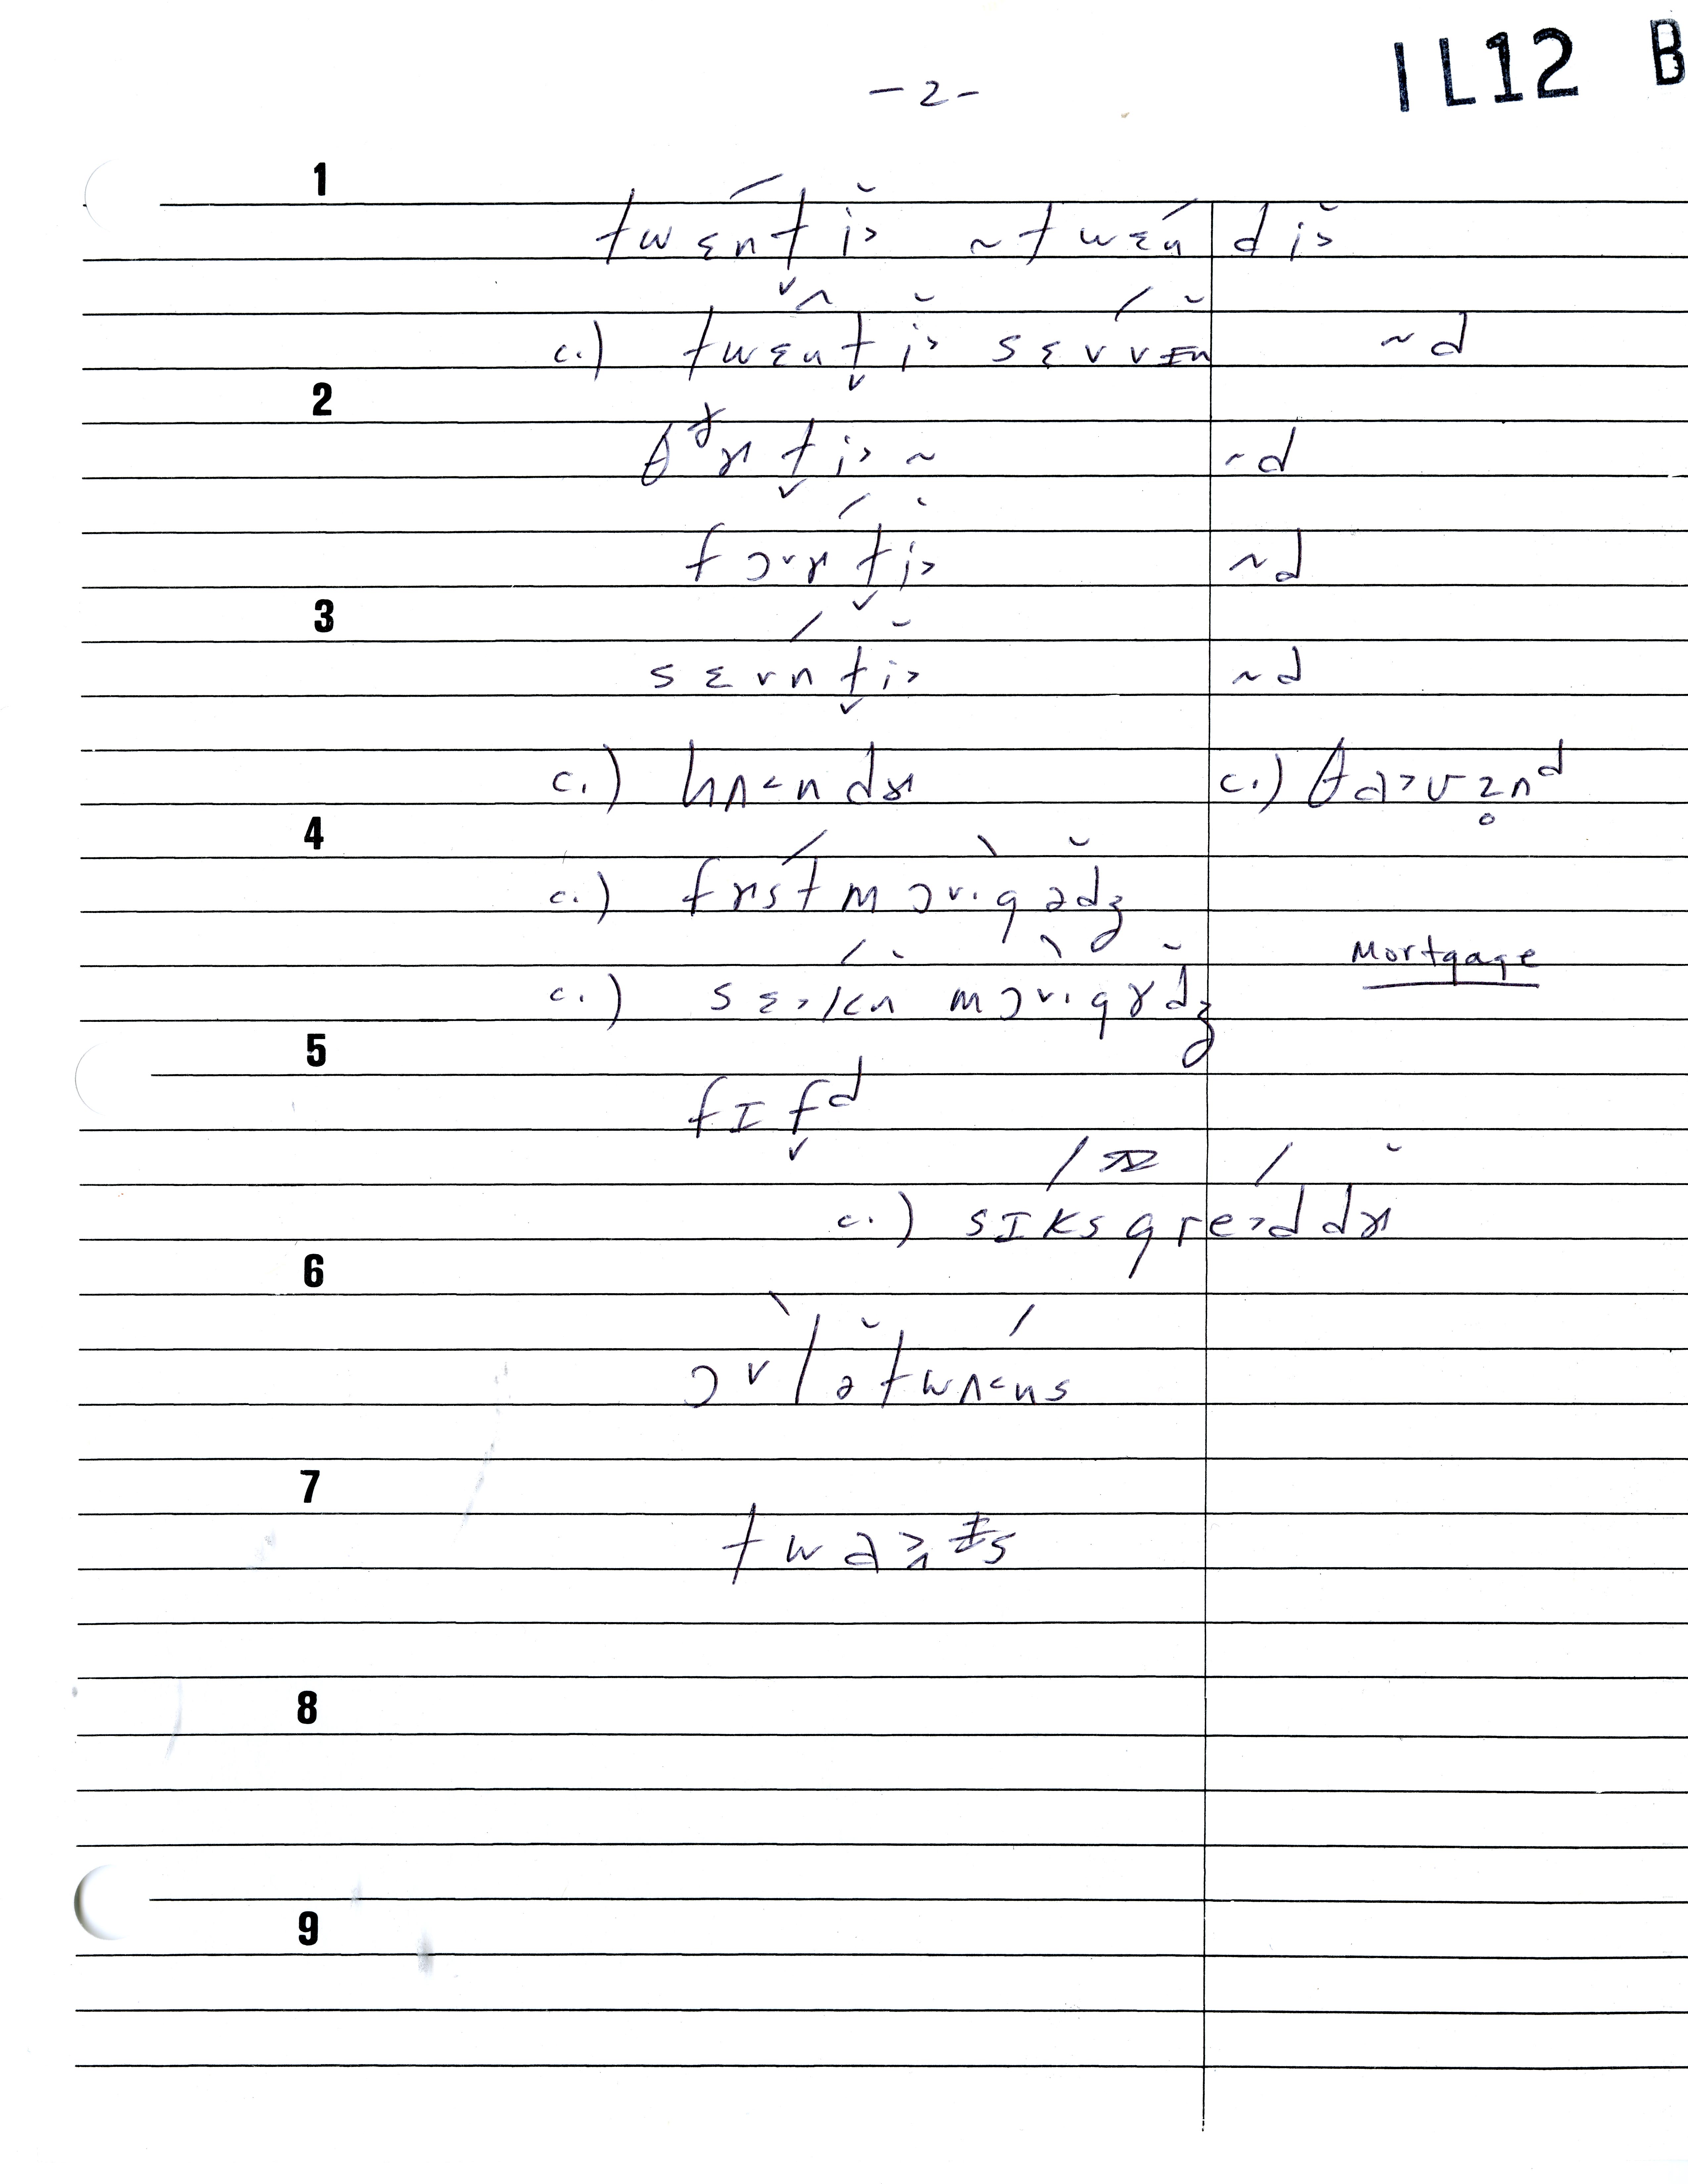 -2-
1L12 B
1
twɛ́nt̬i˃̆ ~ twɛ́ndi˃̆
c.) twɛ̂nt̬i˃̆ sɛ́vvɪ̆n ~d
2
θɚt̬i˃ ~ ~d
fɔ˅ɚ́t̬i˃̆ ~d
3
sɛ́vnt̬i˃̆ ~d
c.) hʌ˂ndɚ c.) θa˃ʊz̥nᵈ
4
c.) fɚ́st mɔ˅ɪgədʒ
c.) sɛ́˃kn mɔ˅ɪgɚdʒ
Mortgage
5
fɪf̬ᵈ
c.) sɪks gre˃ddɚ
6
ɔ˅l ətwʌ˂ns
7
twa˃ɪs
8
9